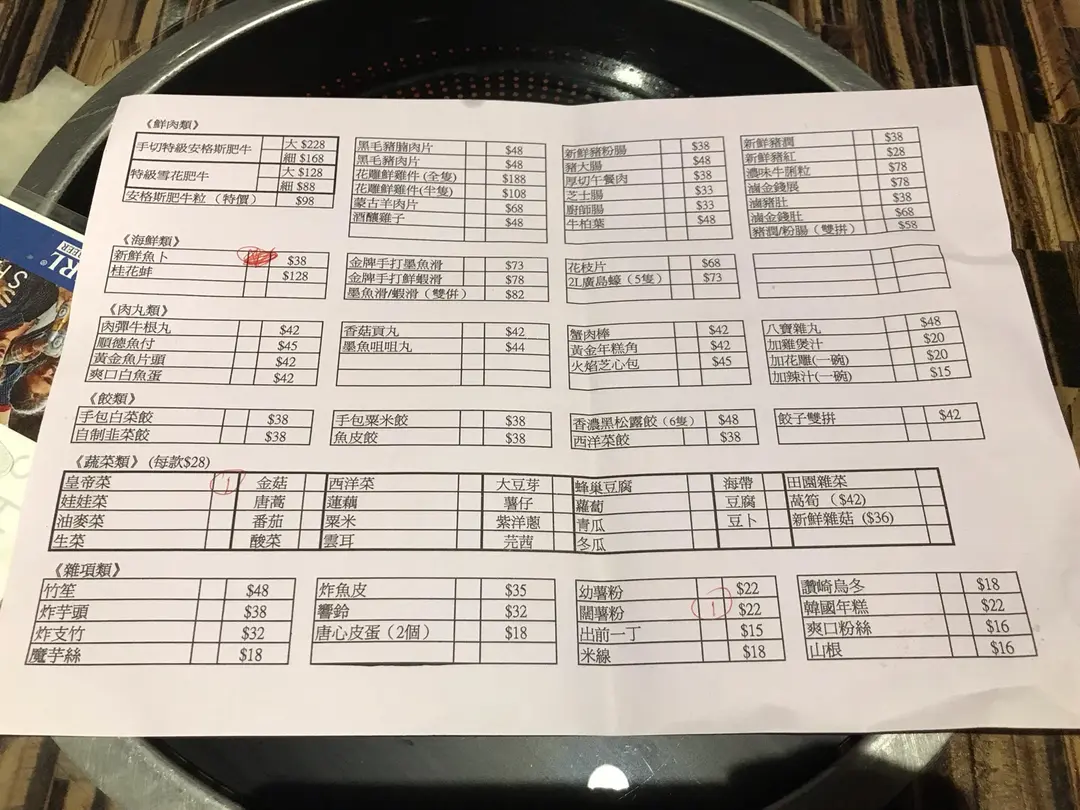 《鮮肉類》
手切特級安格斯肥牛 大 $228
細 $168
特級雪花肥牛 大 $128
細 $88
安格斯肥牛粒（特價） $98
黑毛豬腩肉片 $48
黑毛豬肉片 $48
花雕鮮雞件(全隻) $188
花雕鮮雞件(半隻) $108
蒙古羊肉片 $68
酒釀雞子 $48
新鮮豬粉腸 $38
豬大腸 $48
厚切午餐肉 $38
芝士腸 $33
廚師腸 $33
牛柏葉 $48
新鮮豬潤 $38
新鮮豬紅 $28
濃味牛脷粒 $78
滷金錢展 $78
滷豬肚 $38
滷金錢肚 $68
豬潤/粉腸（雙拼） $58
《海鮮類》
新鮮魚卜 $38
桂花蚌 $128
金牌手打墨魚滑 $73
金牌手打鮮蝦滑 $78
墨魚滑/蝦滑（雙併） $82
花枝片 $68
2L廣島蠔（5隻） $73
《肉丸類》
肉彈牛根丸 $42
順德魚付 $45
黃金魚片頭 $42
爽口白魚蛋 $42
香菇貢丸 $42
墨魚咀咀丸 $44
蟹肉棒 $42
黃金年糕角 $42
火焰芝心包 $45
八寶雜丸 $48
加雞煲汁 $20
加花雕(一碗) $20
加辣汁(一碗) $15
《餃類》
手包白菜餃 $38
自制韭菜餃 $38
手包粟米餃 $38
魚皮餃 $38
香濃黑松露餃（6隻） $48
西洋菜餃 $38
餃子雙拼 $42
《蔬菜類》(每款$28)
皇帝菜 1 金菇 西洋菜 大豆芽 蜂巢豆腐 海帶 田園雜菜
娃娃菜 唐蒿 蓮藕 薯仔 蘿蔔 豆腐 萵筍（$42）
油麥菜 番茄 粟米 紫洋蔥 青瓜 豆卜 新鮮雜菇 ($36)
生菜 酸菜 雲耳 芫茜 冬瓜
《雜項類》
竹笙 $48
炸芋頭 $38
炸支竹 $32
魔芋絲 $18
炸魚皮 $35
響鈴 $32
唐心皮蛋（2個） $18
幼薯粉 $22
闊薯粉 1 $22
出前一丁 $15
米線 $18
讚崎烏冬 $18
韓國年糕 $22
爽口粉絲 $16
山根 $16